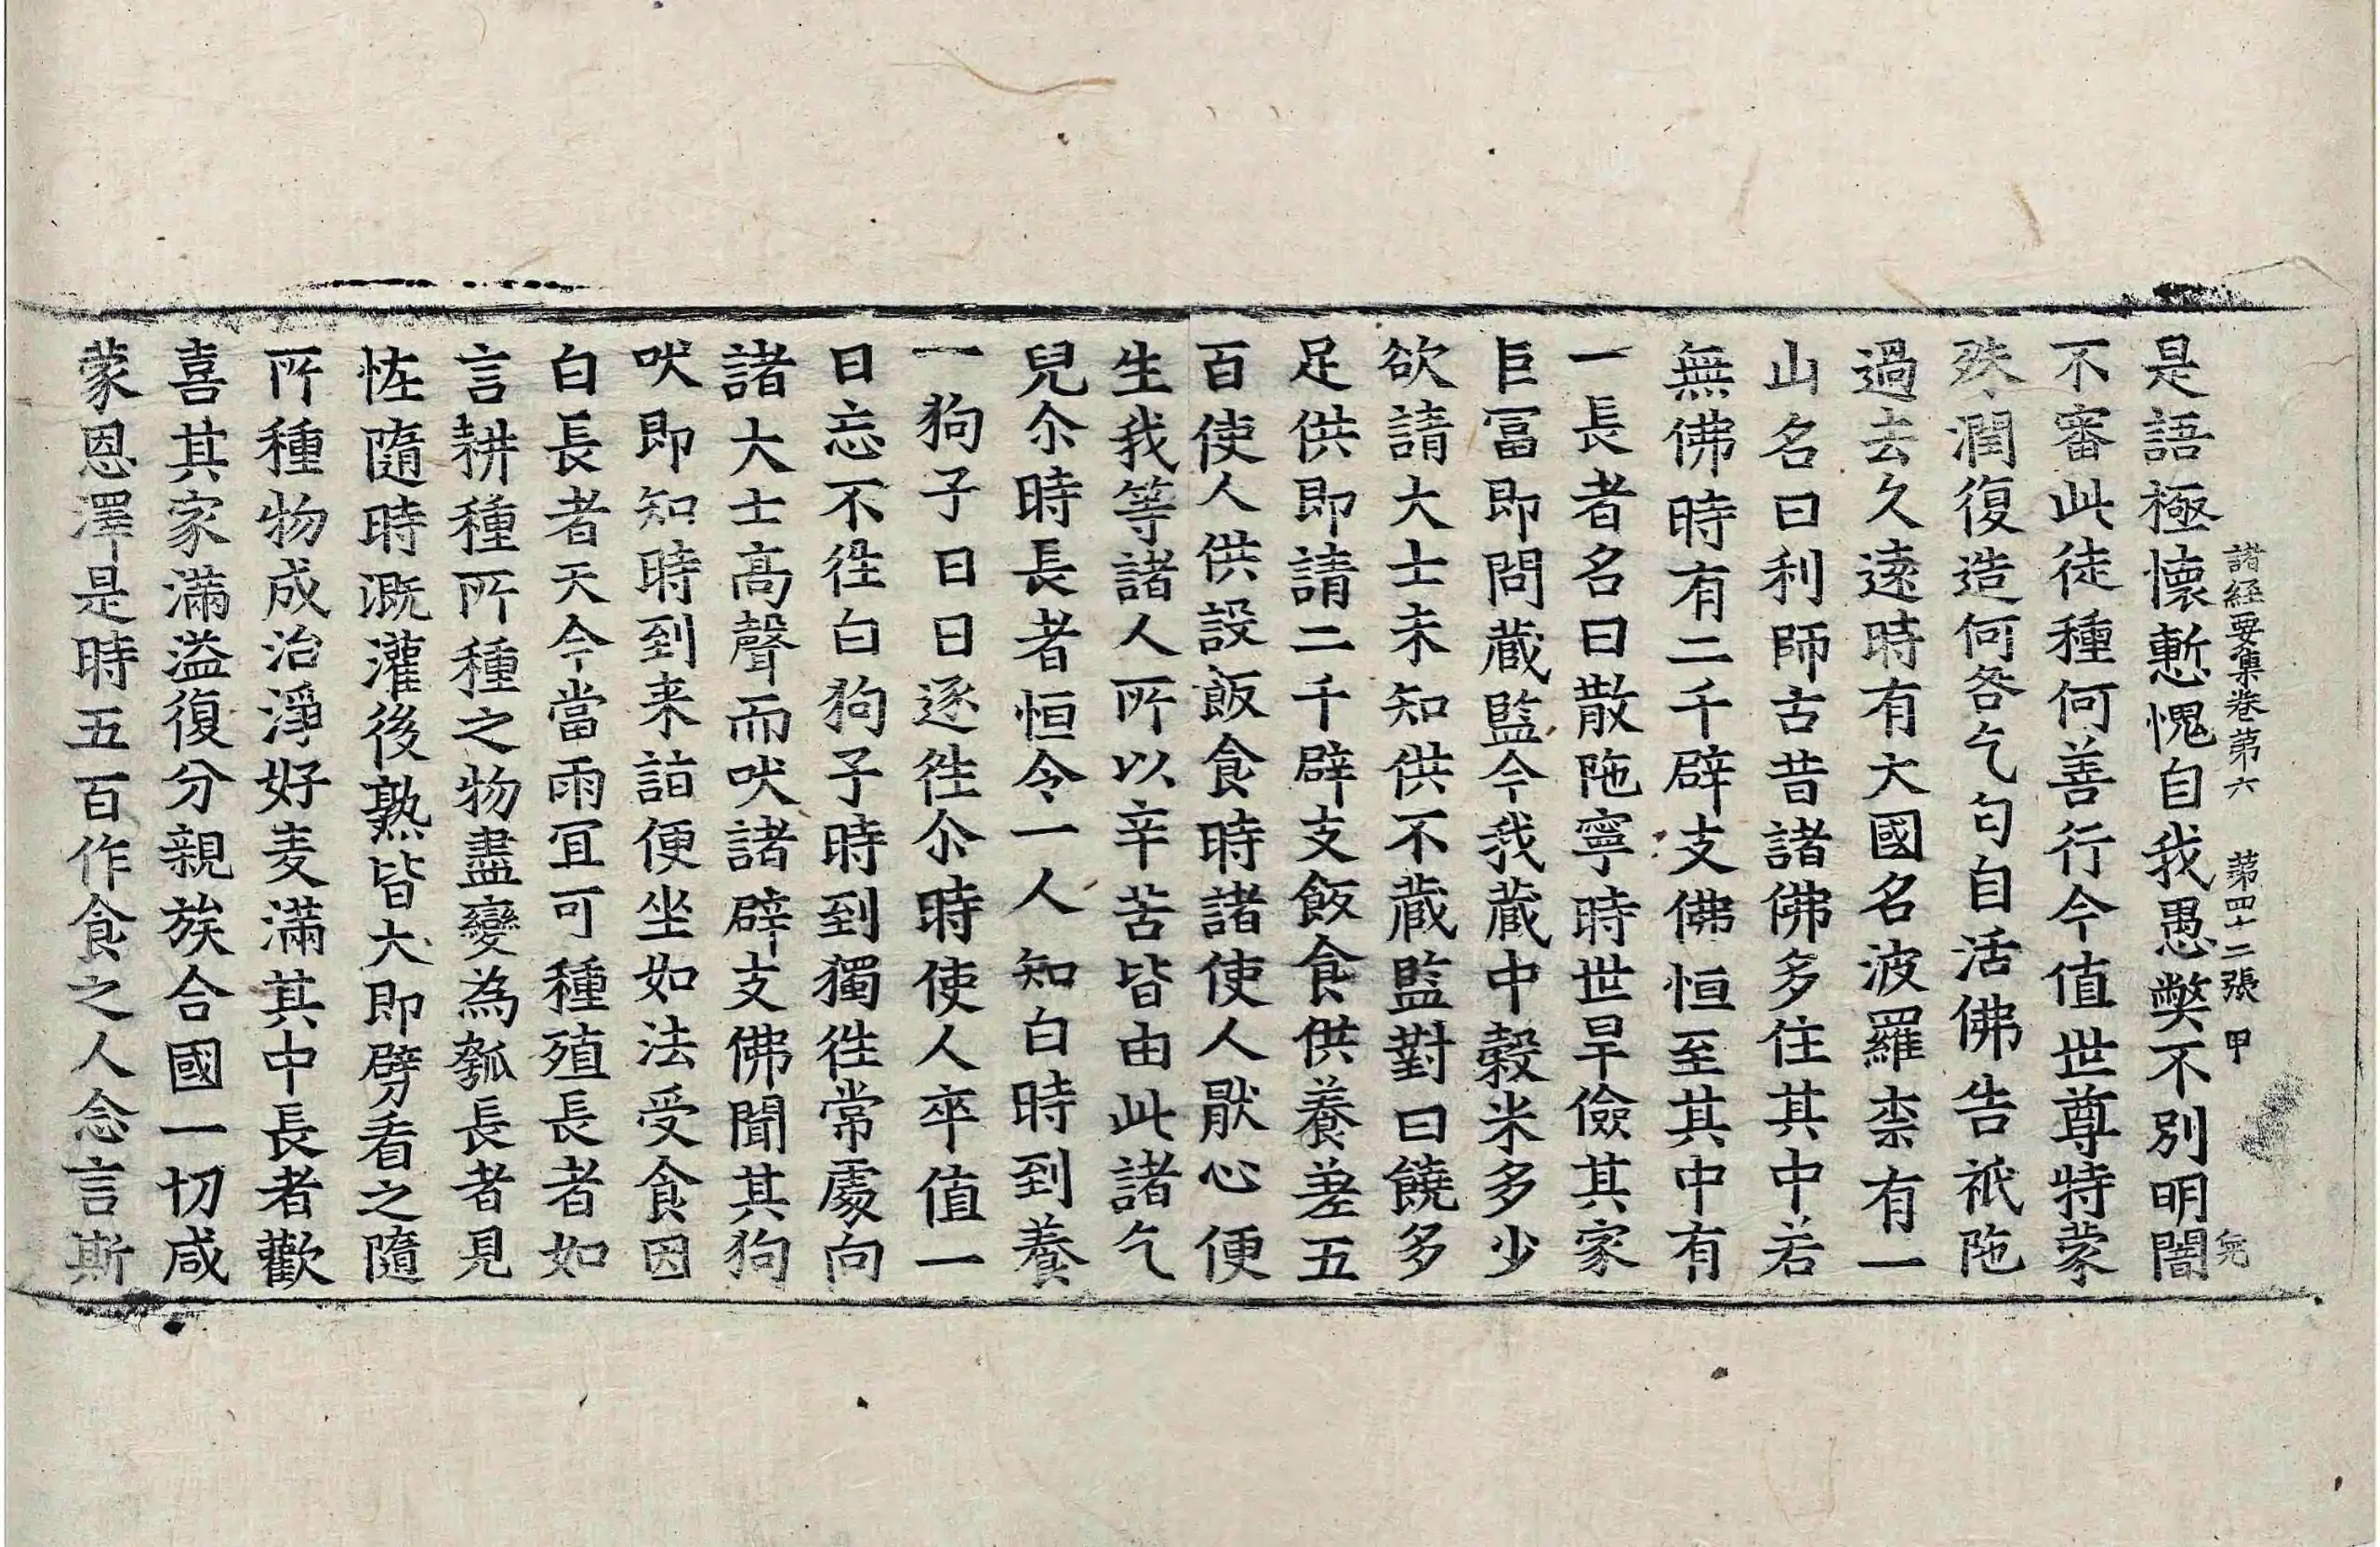 諸經要集卷第六　第四十二張　甲
是語極懷慙愧自我愚弊不別明闇
不審此徒種何善行今值世尊特蒙
殊潤復造何咎乞匂自活佛告祇陁
過去久遠時有大國名波羅柰有一
山名曰利師古昔諸佛多住其中若
無佛時有二千辟支佛恒至其中有
一長者名曰散陁寧時世旱儉其家
巨冨即問蔵監今我蔵中穀米多少
欲請大士未知供不蔵監對曰饒多
足供即請二千辟支飯食供養差五
百使人供設飯食時諸使人猒心便
生我等諸人所以辛苦皆由此諸乞
兒尒時長者恒令一人知白時到養
一狗子日日逐徃尒時使人卒值一
日忘不徃白狗子時到獨徃常處向
諸大士高聲而吠諸辟支佛聞其狗
吠即知時到来詣便坐如法受食因
白長者天今當雨冝可種殖長者如
言耕種所種之物盡變為瓠長者見
恠隨時溉灌後熟皆大即劈看之隨
所種物成治淨好麦滿其中長者歡
喜其家滿溢復分親族合國一切咸
蒙恩澤是時五百作食之人念言斯